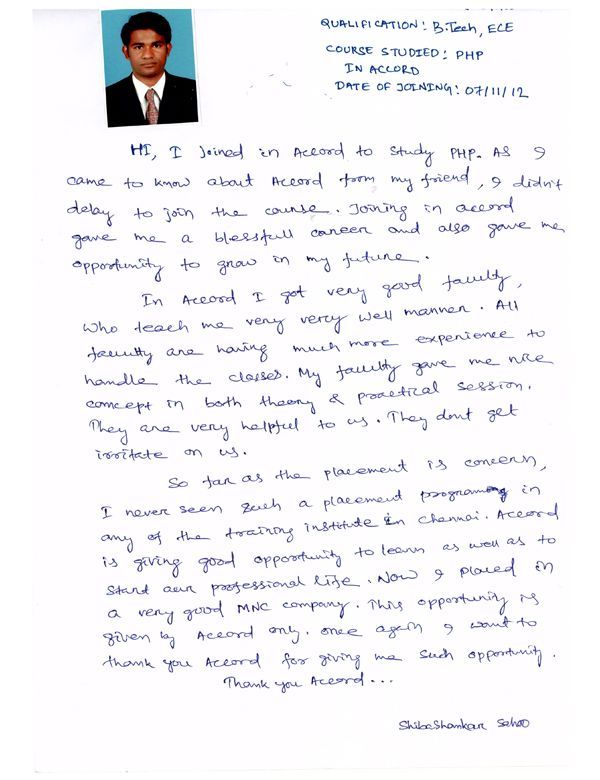 QUALIFICATION: B.Tech, ECE
COURSE STUDIED: PHP
IN ACCORD
DATE OF JOINING: 07/11/12
HI, I Joined in Accord to Study PHP. AS I
came to know about Accord from my friend, I didn't
delay to join the course. Joining in accord
gave me a blessfull career and also gave me
opportunity to grow in my future.
In Accord I got very good faculty,
Who teach me very very well manner. All
faculty are having much more experience to
handle the classes. My faculty gave me nice
concept in both theory & practical session.
They are very helpful to us. They dont get
irritate on us.
So far as the placement is concern,
I never seen such a placement programe in
any of the training institute in Chennai. Accord
is giving good opportunity to learn as well as to
start our professional life. Now I placed in
a very good MNC company. This opportunity is
given by Accord only. once again I want to
thank you Accord for giving me such opportunity.
Thank you Accord...
Shibashankar Sahoo